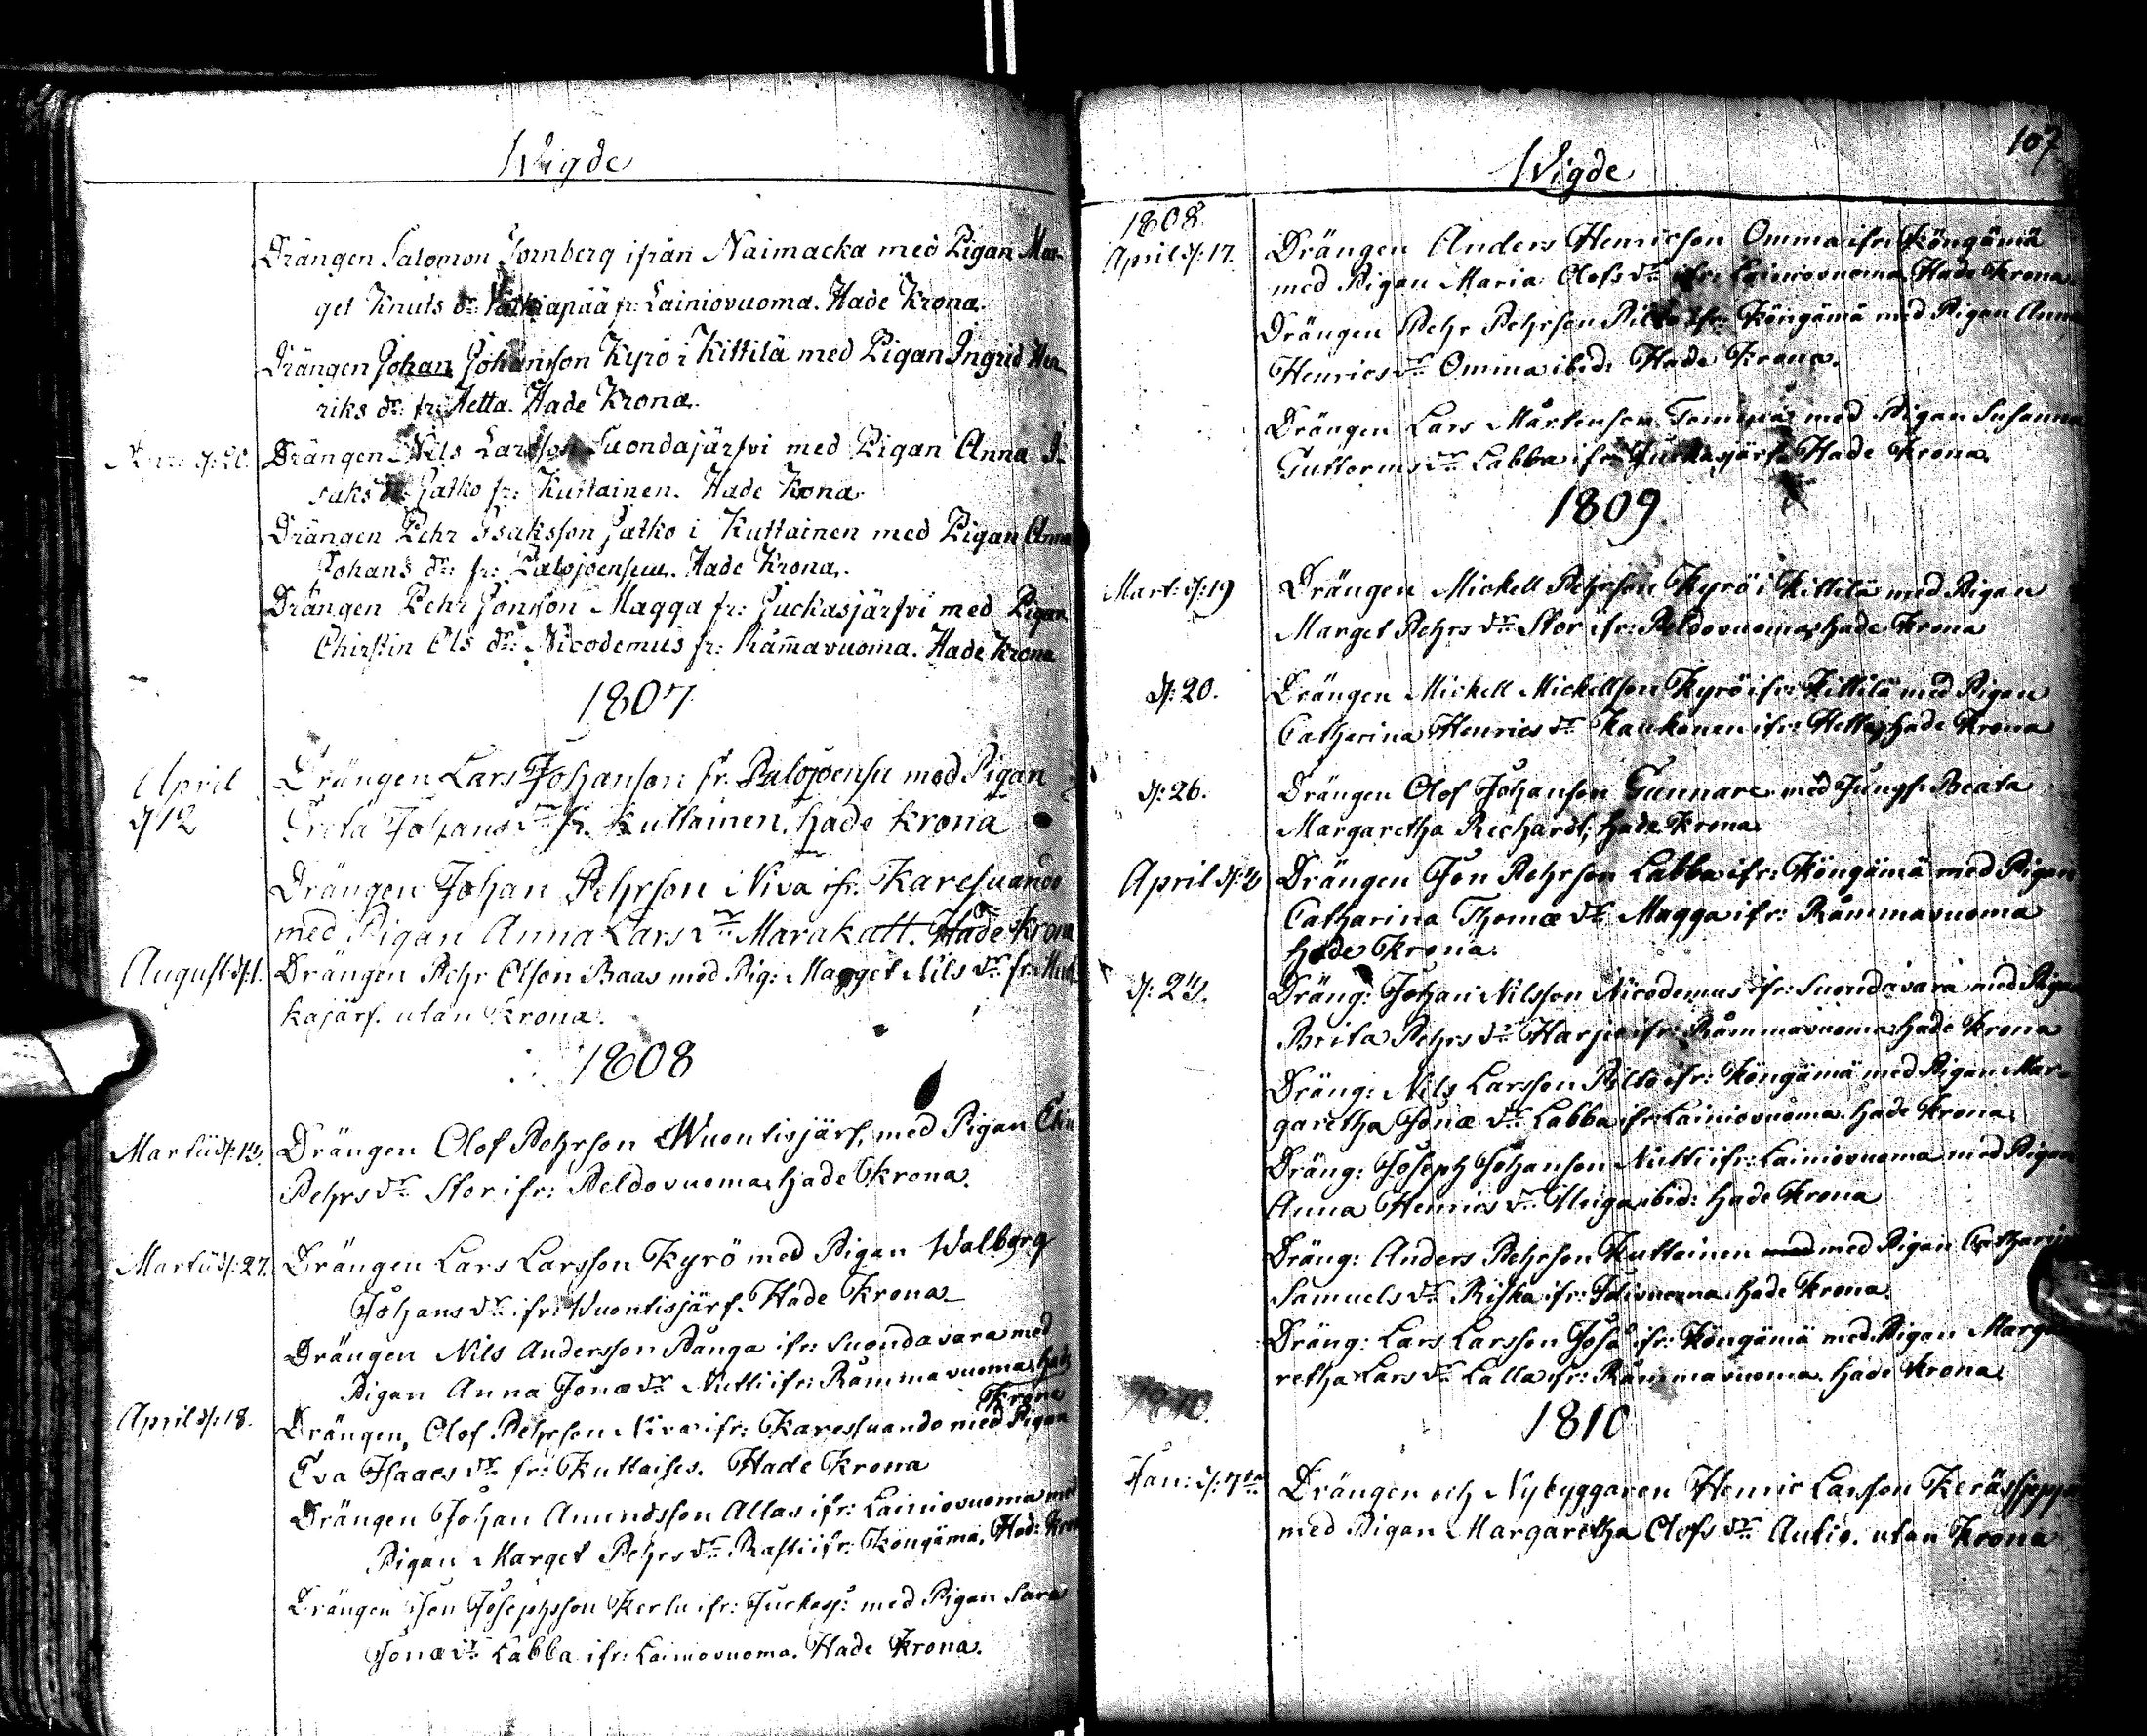 Wigde
Drängen Salomon Fornberg ifrån Naimacka med Pigan Mar-
get Knuts dr: fr: Lainiovuoma. Hade Krona.
Drängen Johan Johansson Kyrö i Kittilä med Pigan Ingrid Hen-
riks dr: fr: Hetta. Hade Krona.
d: 20. Drängen Nils Larsson Suondajärfvi med Pigan Anna I-
saks dr: Jatko fr: Kuttainen. Hade Krona.
Drängen Pehr Isaksson Jatko i Kuttainen med Pigan Anna
Johans dr: fr: Palojoensuu. Hade Krona.
Drängen Pehr Jonsson Magga fr: Juckasjärfvi med Pigan
Chirstin Ols dr: Nicodemus fr: Råmavuoma. Hade Krona
1807
April Drängen Lars Johanson fr. Palojoensu med Pigan
d 12 Greta Johans dr fr. Kuttainen, hade krona
Drängen Johan Pehrson Niva ifr: Karesuando
med Pigan Anna Lars dr Marakatt. Hade Krona
August d: 1. Drängen Pehr Olson Baas med Pig: Marget Nils dr fr:
kajärf. utan Krona.
1808
Martii d: 13. Drängen Olof Pehrson Wuontisjärf, med Pigan
Pehrs dr Stor ifr: Peldovuoma, hade krona.
Martii d: 27. Drängen Lars Larsson Kyrö med Pigan Walborg
Johans dr ifr: Wuontisjärf. Hade Krona
Drängen Nils Andersson Pånga ifr: Suondavara med
Pigan Anna Jonæ dr Nutti ifr: Råmmavuoma, had
Krona
April d: 18. Drängen, Olof Pehrson Niva ifr: Karessuando med Pigan
Eva Isaacs dr fr: Kuttaises. Hade Krona
Drängen Johan Amundsson Allas ifr: Lainiovuoma med
Pigan Marget Pehrs dr Rasti ifr: Köngämä. Had: Kron
Drängen Jon Josephsson Kertu ifr: Juckasj: med Pigan Sara
Jonæ dr Labba ifr: Lainiovuoma. Hade Krona.
107
Wigde
1808.
April d: 17. Drängen Anders Henricson Omma ifr: Köngämä
med Pigan Maria Olofs dr ifr: Lainiovuoma. Hade Krona.
Drängen Pehr Pehrson Pilto ifr: Köngämä med Pigan Anna
Henrics dr Omma ibid: Hade Krona.
Drängen Lars Mårtenson med Pigan Susanna
Guttorms dr Labba ifr: Juckasjärf. Hade Krona.
1809
Mart: d: 19 Drängen Mickell Pehrson Kyrö i Kittilä med Pigan
Marget Pehrs dr Stor ifr: Peldovuoma, hade Krona
d: 20. Drängen Mickell Mickellson Kyrö ifr: Kittilä med Pigan
Catharina Henrics dr Kaukonen ifr: Hetta, hade Krona
d: 26. Drängen Olof Johanson Gunnare med Jungf. Beata
Margaretha Rechardt; hade Krona.
April d: 2 Drängen Jon Pehrson Labba ifr: Köngämä med Pigan
Catharina Thomæ dr Magga ifr: Råmmavuoma
hade Krona.
d: 23. Dräng: Johan Nilsson Nicodemus ifr: Suondavara med Pigan
Brita Pehrs dr Harju ifr: Råmmavuoma hade Krona
Dräng: Nils Larsson Pilto ifr: Köngämä med Pigan Mar-
garetha Jonæ dr Labba ifr: Lainiovuoma. hade Krona.
Dräng: Joseph Johanson Nutti ifr: Lainiovuoma med Pigan
Anna Henrics dr Unga ibid: hade Krona
Dräng: Anders Pehrson Kuttainen med med Pigan Catharin
Samuels dr Riska ifr: hade Krona.
Dräng: Lars Larsson Joså ifr: Köngämä med Pigan Marga
retha Lars dr Lalla ifr: Råmmavuoma. hade Krona.
1810.
1810
Jan: d: 7de Drängen och Nybyggaren Henric Larsson Kerässieppi
med Pigan Margaretha Olofs dr Autio. utan Krona